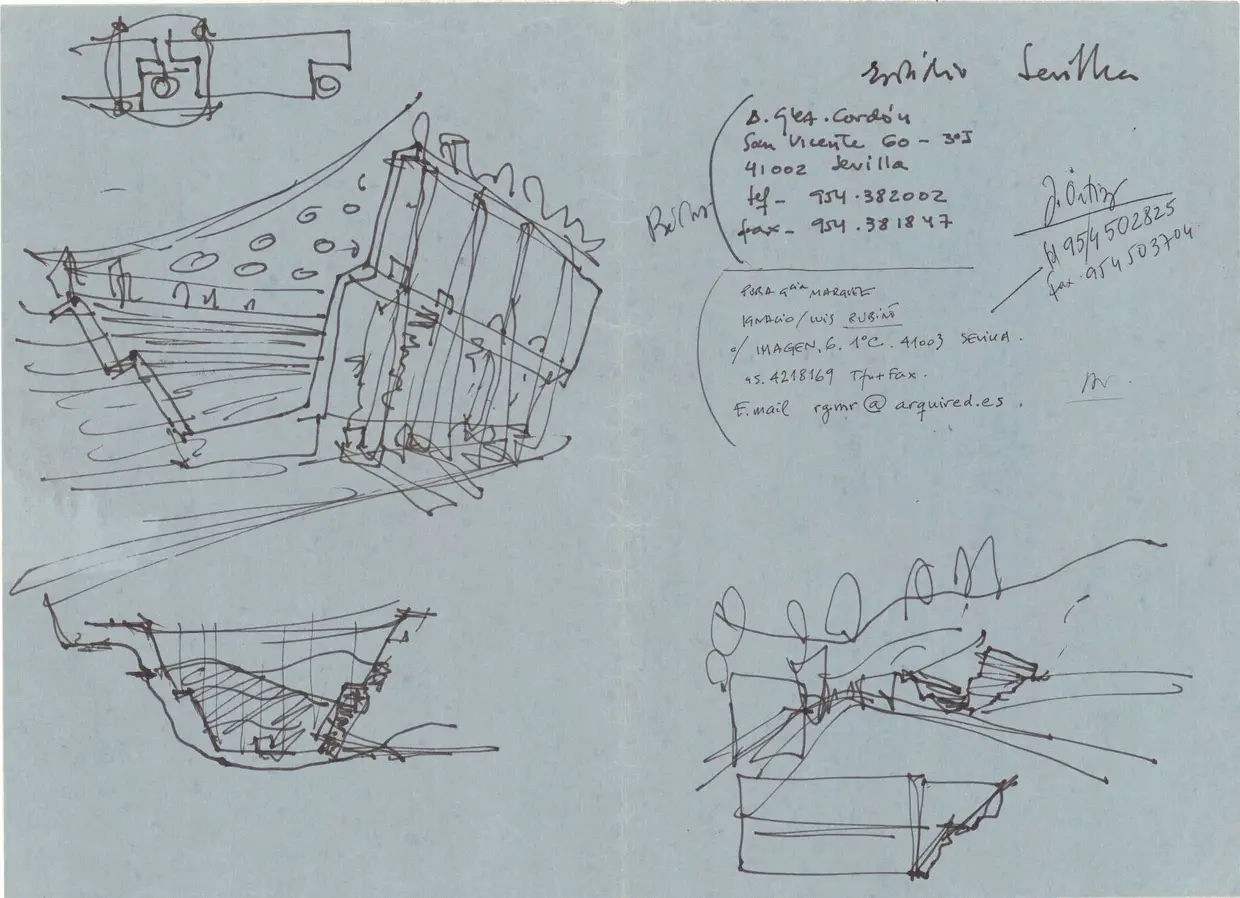 Estudio Sevilla
D. Gª. Cordón
San Vicente 60 - 3º I
41002 Sevilla
tef - 954.382002
fax - 954.381847
J. Ortiz
tel 954 502825
fax. 954 503704
PURA Gcia MARQUEZ
IGNACIO / LUIS RUBIÑO
c/ IMAGEN, 6. 1ºC. 41003 SEVILLA.
95.4218169 Tfn + Fax.
E.mail rgmr@arquired.es.